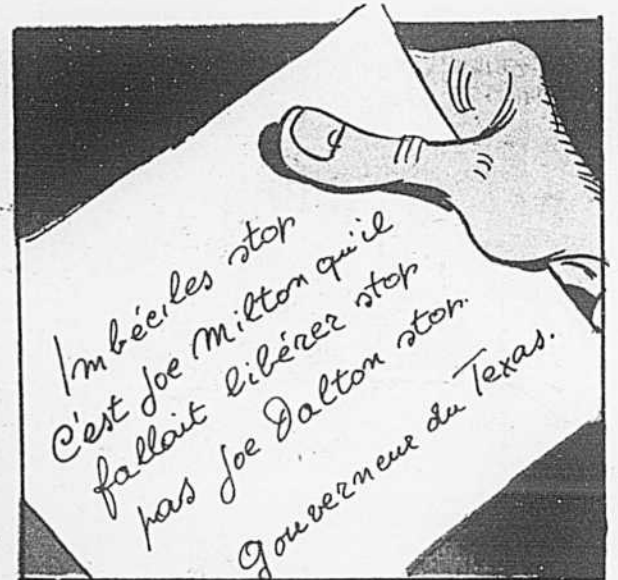 Imbéciles stop
c'est Joe Milton qu'il
fallait libérer stop
pas Joe Dalton stop.
Gouverneur du Texas.